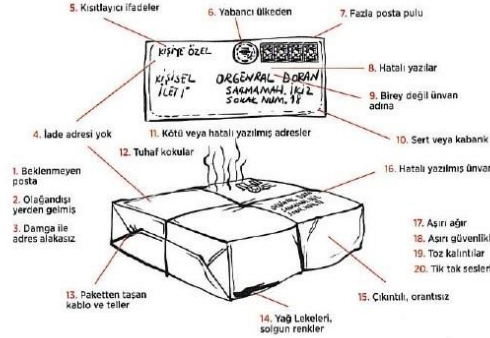 5. Kısıtlayıcı ifadeler
6. Yabancı ülkeden
7. Fazla posta pulu
KİŞİYE ÖZEL
KİŞİSEL
İLETİ
ORGENRAL DORAN
SAÇMAMAH. İKİZ
SOKAK NUM. 18
8. Hatalı yazılar
9. Birey değil ünvan
adına
4. İade adresi yok
11. Kötü veya hatalı yazılmış adresler
10. Sert veya kabarık
12. Tuhaf kokular
1. Beklenmeyen
posta
2. Olağandışı
yerden gelmiş
3. Damga ile
adres alakasız
16. Hatalı yazılmış ünvan
17. Aşırı ağır
18. Aşırı güvenlikl
19. Toz kalıntılar
20. Tik tak sesleri
13. Paketten taşan
kablo ve teller
14. Yağ Lekeleri,
solgun renkler
15. Çıkıntılı, orantısız